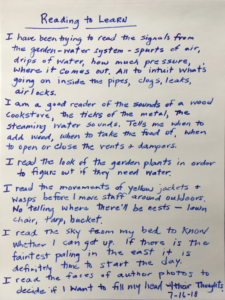 Reading to Learn
I have been trying to read the signals from
the garden-water system - spurts of air,
drips of water, how much pressure,
where it comes out. All to intuit what's
going on inside the pipes, clogs, leaks,
air locks.
I am a good reader of the sounds of a wood
Cookstove, the ticks of the metal, the
steaming water sounds. Tells me when to
add wood, when to take the food off, when
to open or close the vents + dampers.
I read the look of the garden plants in order
to figure out if they need water.
I read the movements of yellow jackets +
wasps before I move stuff around outdoors.
No telling where there'll be nests - lawn
chair, tarp, bucket.
I read the sky from my bed to know
whether I can get up. If there is the
faintest paling in the east it is
definitely time to start the day.
I read the faces of author photos to
decide if I want to fill my head w/their Thoughts
7-16-18